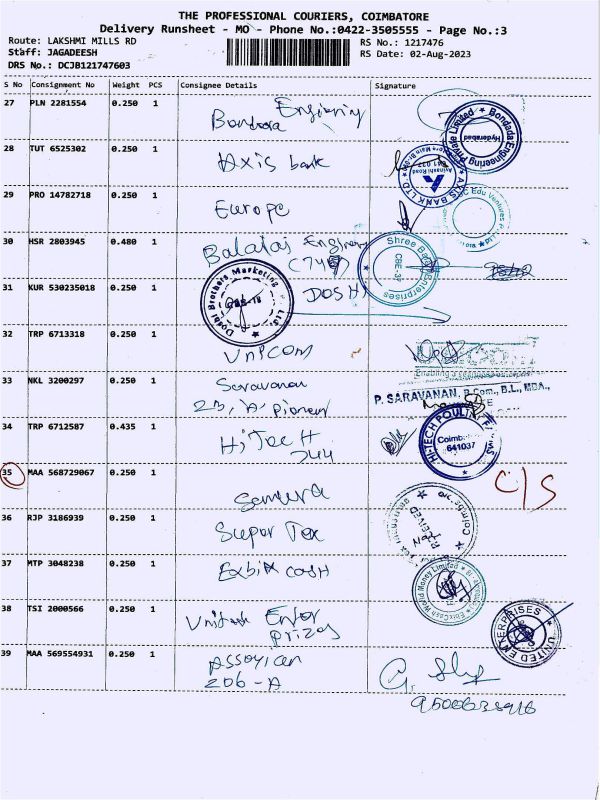 THE PROFESSIONAL COURIERS, COIMBATORE
Delivery Runsheet - MO - Phone No.:0422-3505555 - Page No.:3
Route: LAKSHMI MILLS RD
RS No.: 1217476
Staff: JAGADEESH
RS Date: 02-Aug-2023
DRS No.: DCJB121747603
S No Consignment No Weight PCS Consignee Details Signature
27 PLN 2281554 0.250 1
Bondada Engineering Private Limited
Hyderabad
28 TUT 6525302 0.250 1 Axis bank
AXIS BANK LTD
Avinashi Road
29 PRO 14782718 0.250 1 Europe
Edu Ventures
30 HSR 2803945 0.480 1
Shree
Enterprises
CBE-37
31 KUR 530235018 0.250 1 DOSHI
Doshi Brothers Marketing
32 TRP 6713318 0.250 1 UNICOM
33 NKL 3200297 0.250 1 Saravanan
23, 'A' pioneer
P. SARAVANAN, B.Com., B.L., MBA.,
34 TRP 6712587 0.435 1 HiTecH
744
HI-TECH POULTRY FARMS
641037
35 MAA 568729067 0.250 1
C/S
36 RJP 3186939 0.250 1 Super Tex
RECEIVED
37 MTP 3048238 0.250 1 Exbix cash
EbixCash World Money Limited
38 TSI 2000566 0.250 1 Enter
prizes
UNITED ENTERPRISES
39 MAA 569554931 0.250 1
206-A